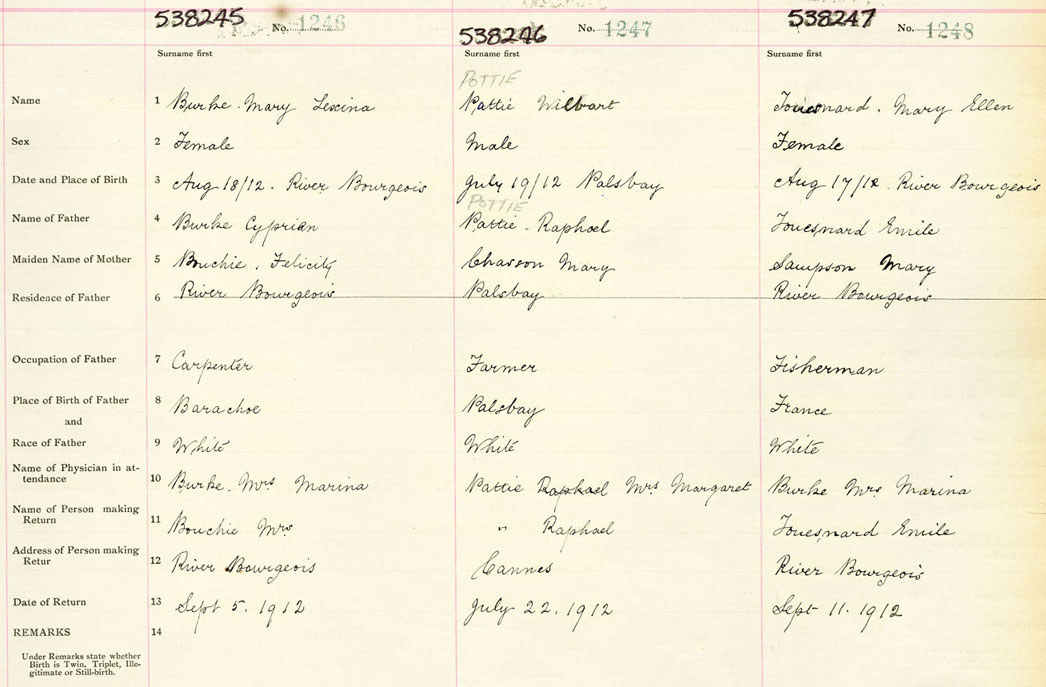 538245 No. 1246 538246 No. 1247 538247 No. 1248
Surname first Surname first Surname first
POTTIE
Name 1 Burke. Mary Lexina Pattie Wilbart Jouesnard. Mary Ellen
Sex 2 Female Male Female
Date and Place of Birth 3 Aug 18/12. River Bourgeois July 19/12 Palsbay Aug 17/12. River Bourgeois
POTTIE
Name of Father 4 Burke Cyprian Pattie. Raphael Jouesnard Emile
Maiden Name of Mother 5 Bouchie. Felicity Chasson Mary Sampson Mary
Residence of Father 6 River Bourgeois Palsbay River Bourgeois
Occupation of Father 7 Carpenter Farmer Fisherman
Place of Birth of Father 8 Barachoe Palsbay France
and
Race of Father 9 White White White
Name of Physician in at-
tendance 10 Burke. Mrs Marina Pattie Raphael Mrs Margaret Burke Mrs Marina
Name of Person making
Return 11 Bouchie Mrs " Raphael Jouesnard Emile
Address of Person making
Retur 12 River Bourgeois Cannes River Bourgeois
Date of Return 13 Sept 5. 1912 July 22. 1912 Sept 11. 1912
REMARKS 14
Under Remarks state whether
Birth is Twin, Triplet, Ille-
gitimate or Still-birth.